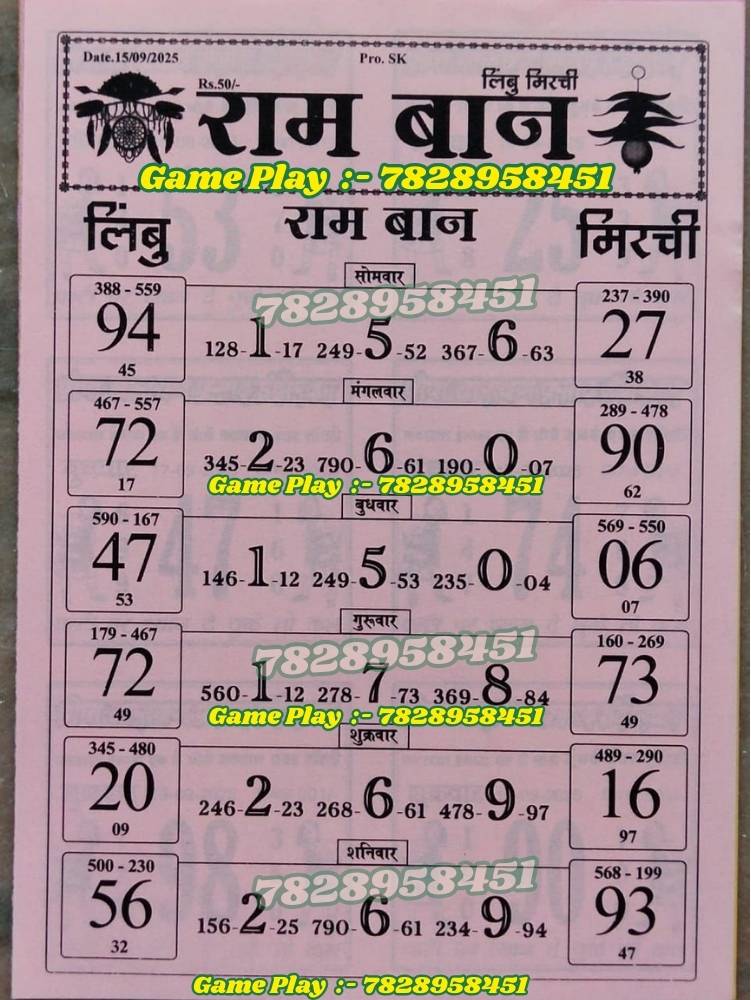 Date.15/09/2025 Pro. SK
Rs.50/- लिंबु मिरची
राम बान
Game Play :- 7828958451
लिंबु राम बान मिरची
सोमवार
7828958451
388 - 559 237 - 390
94 128-1-17 249-5-52 367-6-63 27
45 38
मंगलवार
467 - 557 289 - 478
72 345-2-23 790-6-61 190-0-07 90
17 62
Game Play :- 7828958451
बुधवार
590 - 167 569 - 550
47 146-1-12 249-5-53 235-0-04 06
53 07
गुरूवार
7828958451
179 - 467 160 - 269
72 560-1-12 278-7-73 369-8-84 73
49 49
Game Play :- 7828958451
शुक्रवार
345 - 480 489 - 290
20 246-2-23 268-6-61 478-9-97 16
09 97
शनिवार
7828958451
500 - 230 568 - 199
56 156-2-25 790-6-61 234-9-94 93
32 47
Game Play :- 7828958451